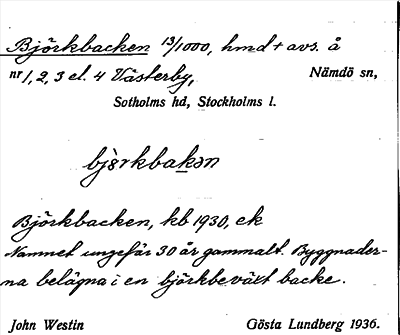 Björkbacken 13/1000, hmd + avs. å
nr 1, 2, 3 el. 4 Västerby, Nämdö sn,
Sotholms hd, Stockholms l.
björkbakən
Björkbacken, kb 1930, ek
Namnet ungefär 30 år gammalt. Byggnader-
na belägna i en björkbeväxt backe.
John Westin Gösta Lundberg 1936.